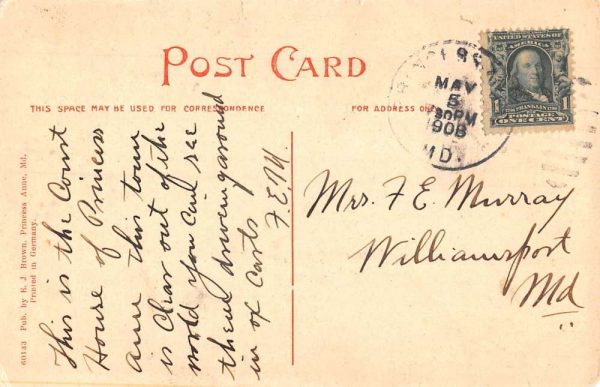 POST CARD
THIS SPACE MAY BE USED FOR CORRESPONDENCE
FOR ADDRESS ONLY
UNITED STATES OF
AMERICA
1706 FRANKLIN 1790
1 POSTAGE 1
ONE CENT
MAY
5
30PM
1908
MD.
This is the Court
House of Princess
Anne this town
is clear out of the
world you can see
them driving around
in ox carts
F.E.M.
Mrs. F. E. Murray
Williamsport
Md
60143 Pub. by E. J. Brown, Princess Anne, Md.
Printed in Germany.